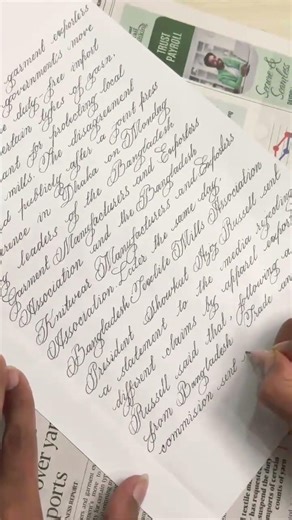 garment exporters
government's move
duty free import
certain types of yarn.
ant for protecting local
mills. The disagreement
d publicly after a joint press
erence in Dhaka on Monday
leaders of the Bangladesh
Garment Manufacturers and Exporters
Association and the Bangladesh
Knitwear Manufacturers and Exporters
Association. Later the same day,
Bangladesh Textile Mills Association
President Showkat Aziz Russell sent
a statement to the media rejecting
different claims by apparel exporters
Russell said that, following a
from Bangladesh Trade an
commission sent
TRUST
PAYROLL
over yar
ports
textile mi
suspend the duty
imports of certain
counts of yarn